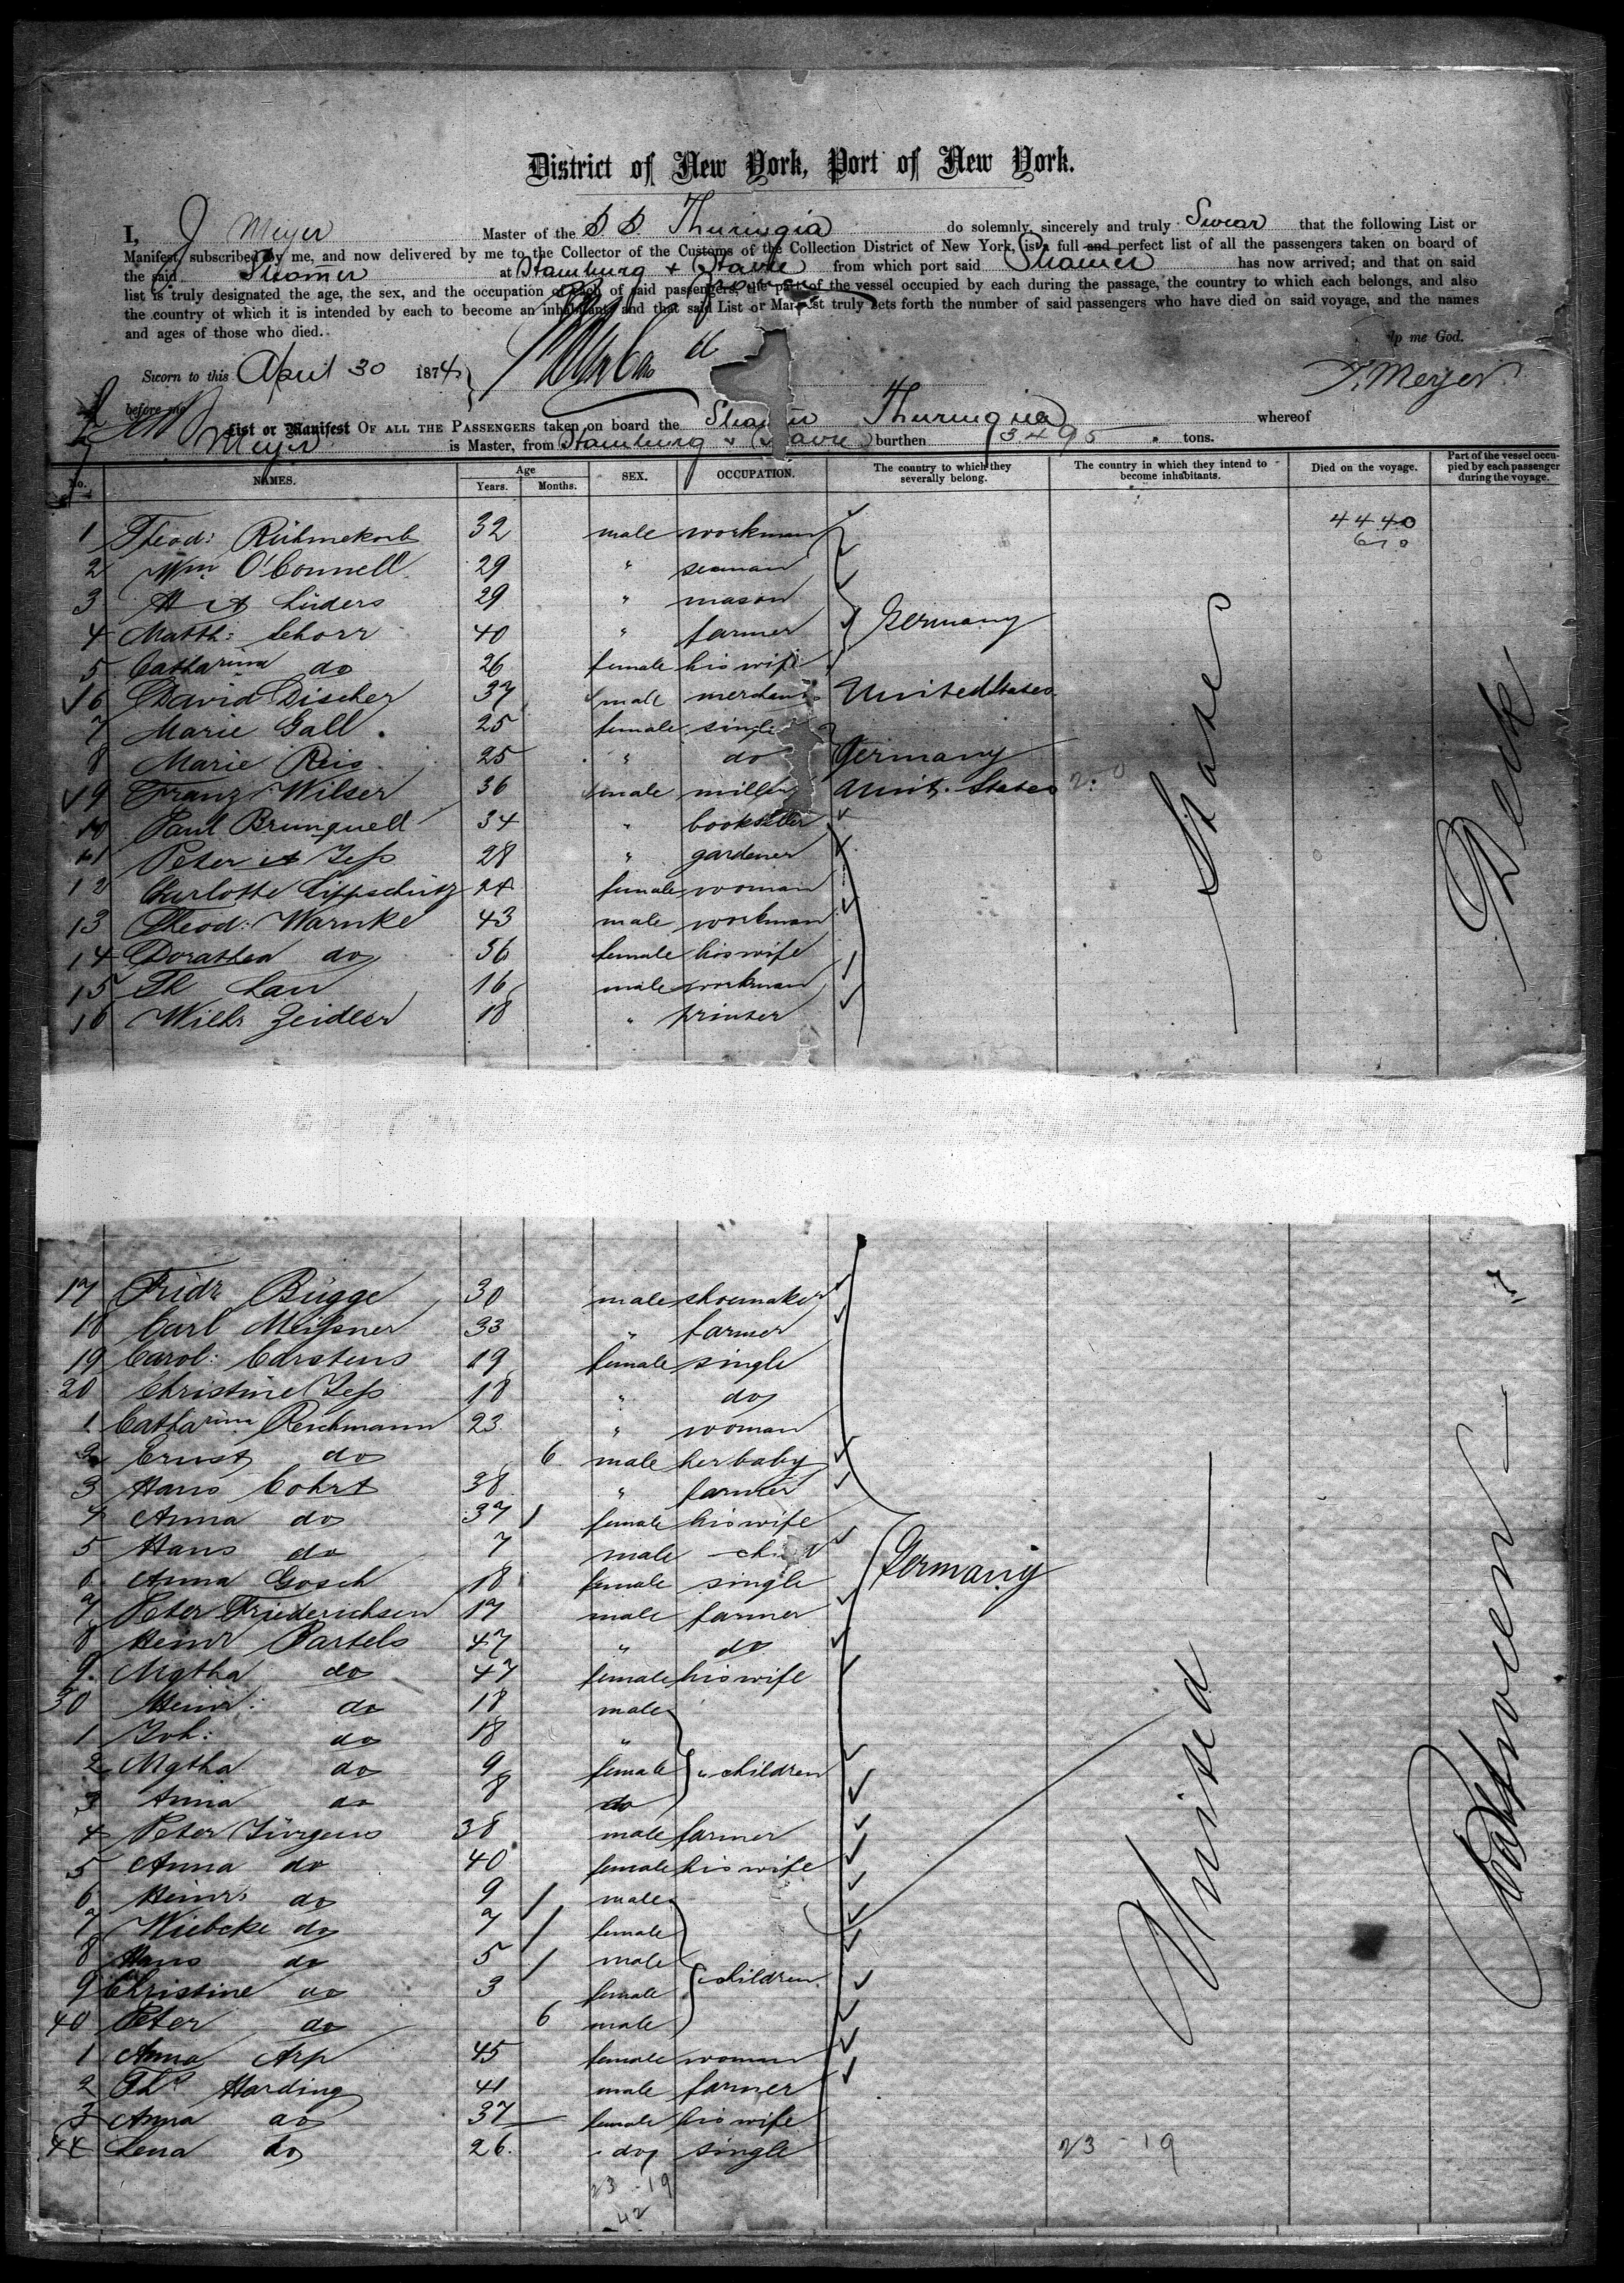 District of New York, Port of New York.
I, J Meyer Master of the S S. Thuringia do solemnly, sincerely and truly Swear that the following List or
Manifest, subscribed by me, and now delivered by me to the Collector of the Customs of the Collection District of New York, is a full and perfect list of all the passengers taken on board of
the said Steamer at Hamburg + Havre from which port said Steamer has now arrived; and that on said
list is truly designated the age, the sex, and the occupation of each of said passengers, the part of the vessel occupied by each during the passage, the country to which each belongs, and also
the country of which it is intended by each to become an inhabitant; and that said List or Manifest truly sets forth the number of said passengers who have died on said voyage, and the names
and ages of those who died.
lp me God.
Sworn to this April 30 1874
J. Meyer
before me
List or Manifest OF ALL THE PASSENGERS taken on board the Steamer Thuringia whereof
Meyer is Master, from Hamburg + Havre burthen 3495 tons.
No. NAMES. Age Years. Months. SEX. OCCUPATION. The country to which they severally belong. The country in which they intend to become inhabitants. Died on the voyage. Part of the vessel occupied by each passenger during the voyage.
4440
610
1 Theod: Rühmekorb 32 male workman
2 Wm O'Connell 29 " seaman
3 H A Lüders 29 " mason
4 Matth: Schorr 40 " farmer Germany
5 Catharina do 26 female his wife
6 David Discher 37 male merchant United States
7 Marie Gall 25 female single
8 Marie Reis 25 " do Germany
9 Franz Wilser 36 male miller Unit. States
10 Paul Brunquell 34 " bookseller
11 Peter A Jeß 28 " gardener
12 Charlotte Lippschütz 24 female woman
13 Theod: Warnke 43 male workman
14 Dorathea do 36 female his wife
15 Th Lau 16 male workman
16 Wilh: Zeidler 18 " printer
17 Fridr Bügge 30 male shoemaker
18 Carl Meißner 33 " farmer
19 Carol: Carstens 19 female single
20 Christine Jeß 18 " do
1 Catharina Reichmann 23 " woman
2 Ernst do 6 male her baby
3 Hans Cohrt 38 " farmer
4 Anna do 37 female his wife
5 Hans do 7 male child
6 Anna Gosch 18 female single Germany
7 Peter Friederichsen 17 male farmer
8 Heinr Bartels 47 " do
9 Mgtha do 47 female his wife
30 Heinr: do 18 male
1 Joh: do 18 "
2 Mgtha do 9 female children
3 Anna do 8 do
4 Peter Jürgens 38 male farmer
5 Anna do 40 female his wife
6 Heinr: do 9 male
7 Wiebcke do 7 female
8 Hans do 5 male
9 Christine do 3 female children
40 Peter do 6 male
1 Anna Arp 45 female woman
2 Ths Harding 41 male farmer
3 Anna do 37 female his wife
44 Lena do 26 do single
23 - 19
23 - 19
42
United States
Between Deck